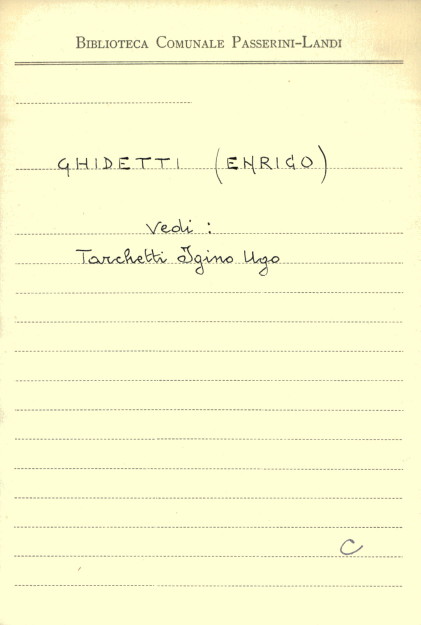 BIBLIOTECA COMUNALE PASSERINI-LANDI
GHIDETTI (ENRIGO)
Vedi :
Tarchetti Igino Ugo
C